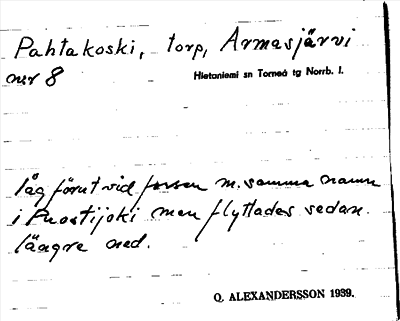 Pahtakoski, torp, Armasjärvi
nr 8
Hietaniemi sn Torneå tg Norrb. l.
låg förut vid forsen m. samma namn
i Puostijoki men flyttades sedan
längre ned.
Q. ALEXANDERSSON 1939.